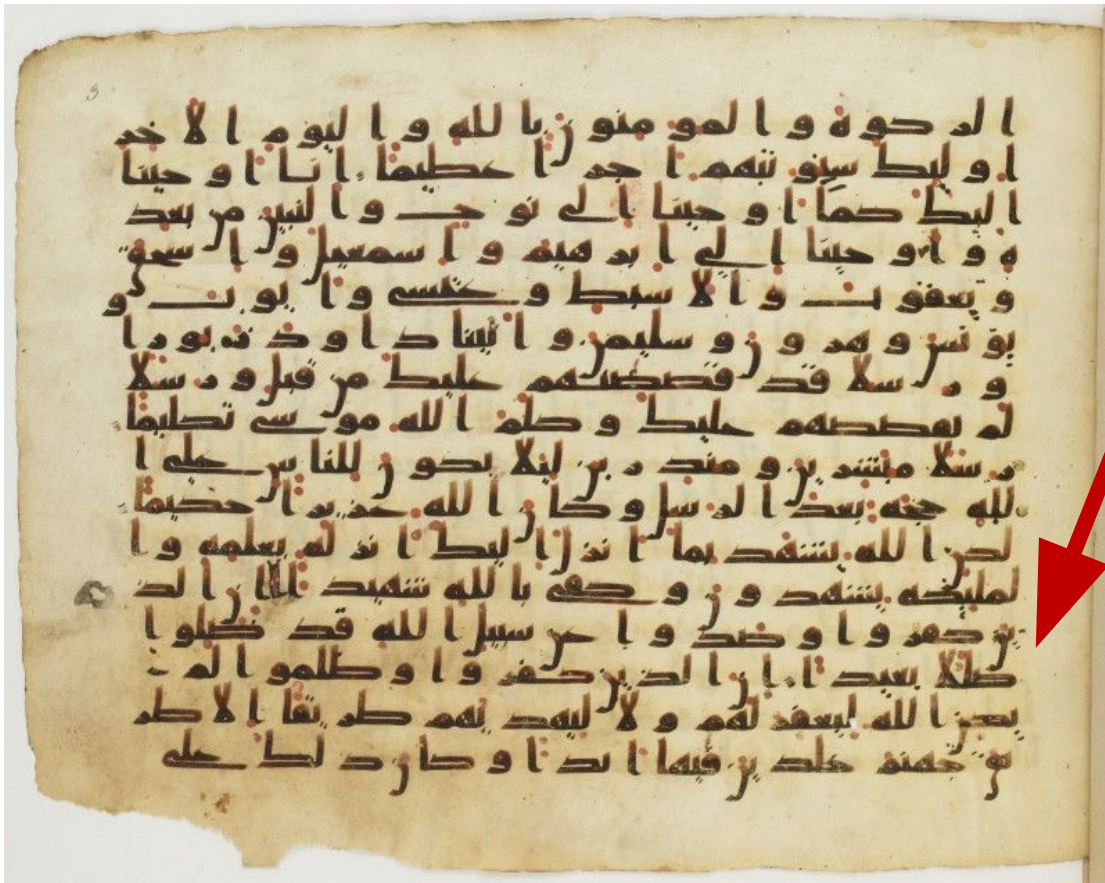 3
الزكوة والمومنون بالله واليوم الاخر
اوليك سنوتيهم اجرا عظيما انا اوحينا
اليك كما اوحينا الى نوح والنبين من بعد
ه واوحينا الى ابرهيم واسمعيل واسحق
ويعقوب والاسبط وعيسى وايوب و
يونس وهرون وسليمن واتينا داود زبورا
ورسلا قد قصصنهم عليك من قبل ورسلا
لم نقصصهم عليك وكلم الله موسى تكليما
رسلا مبشرين ومنذرين ليلا يكون للناس على ا
لله حجة بعد الرسل وكان الله عزيزا حكيما
لكن الله يشهد بما انزل اليك انزله بعلمه وا
لمليكة يشهدون وكفى بالله شهيدا ان الذ
ين كفروا وصدوا عن سبيل الله قد ضلوا
ضللا بعيدا ان الذين كفروا وظلموا لم
يكن الله ليغفر لهم ولا ليهديهم طريقا الا طر
يق جهنم خلدين فيها ابدا وكان ذلك على